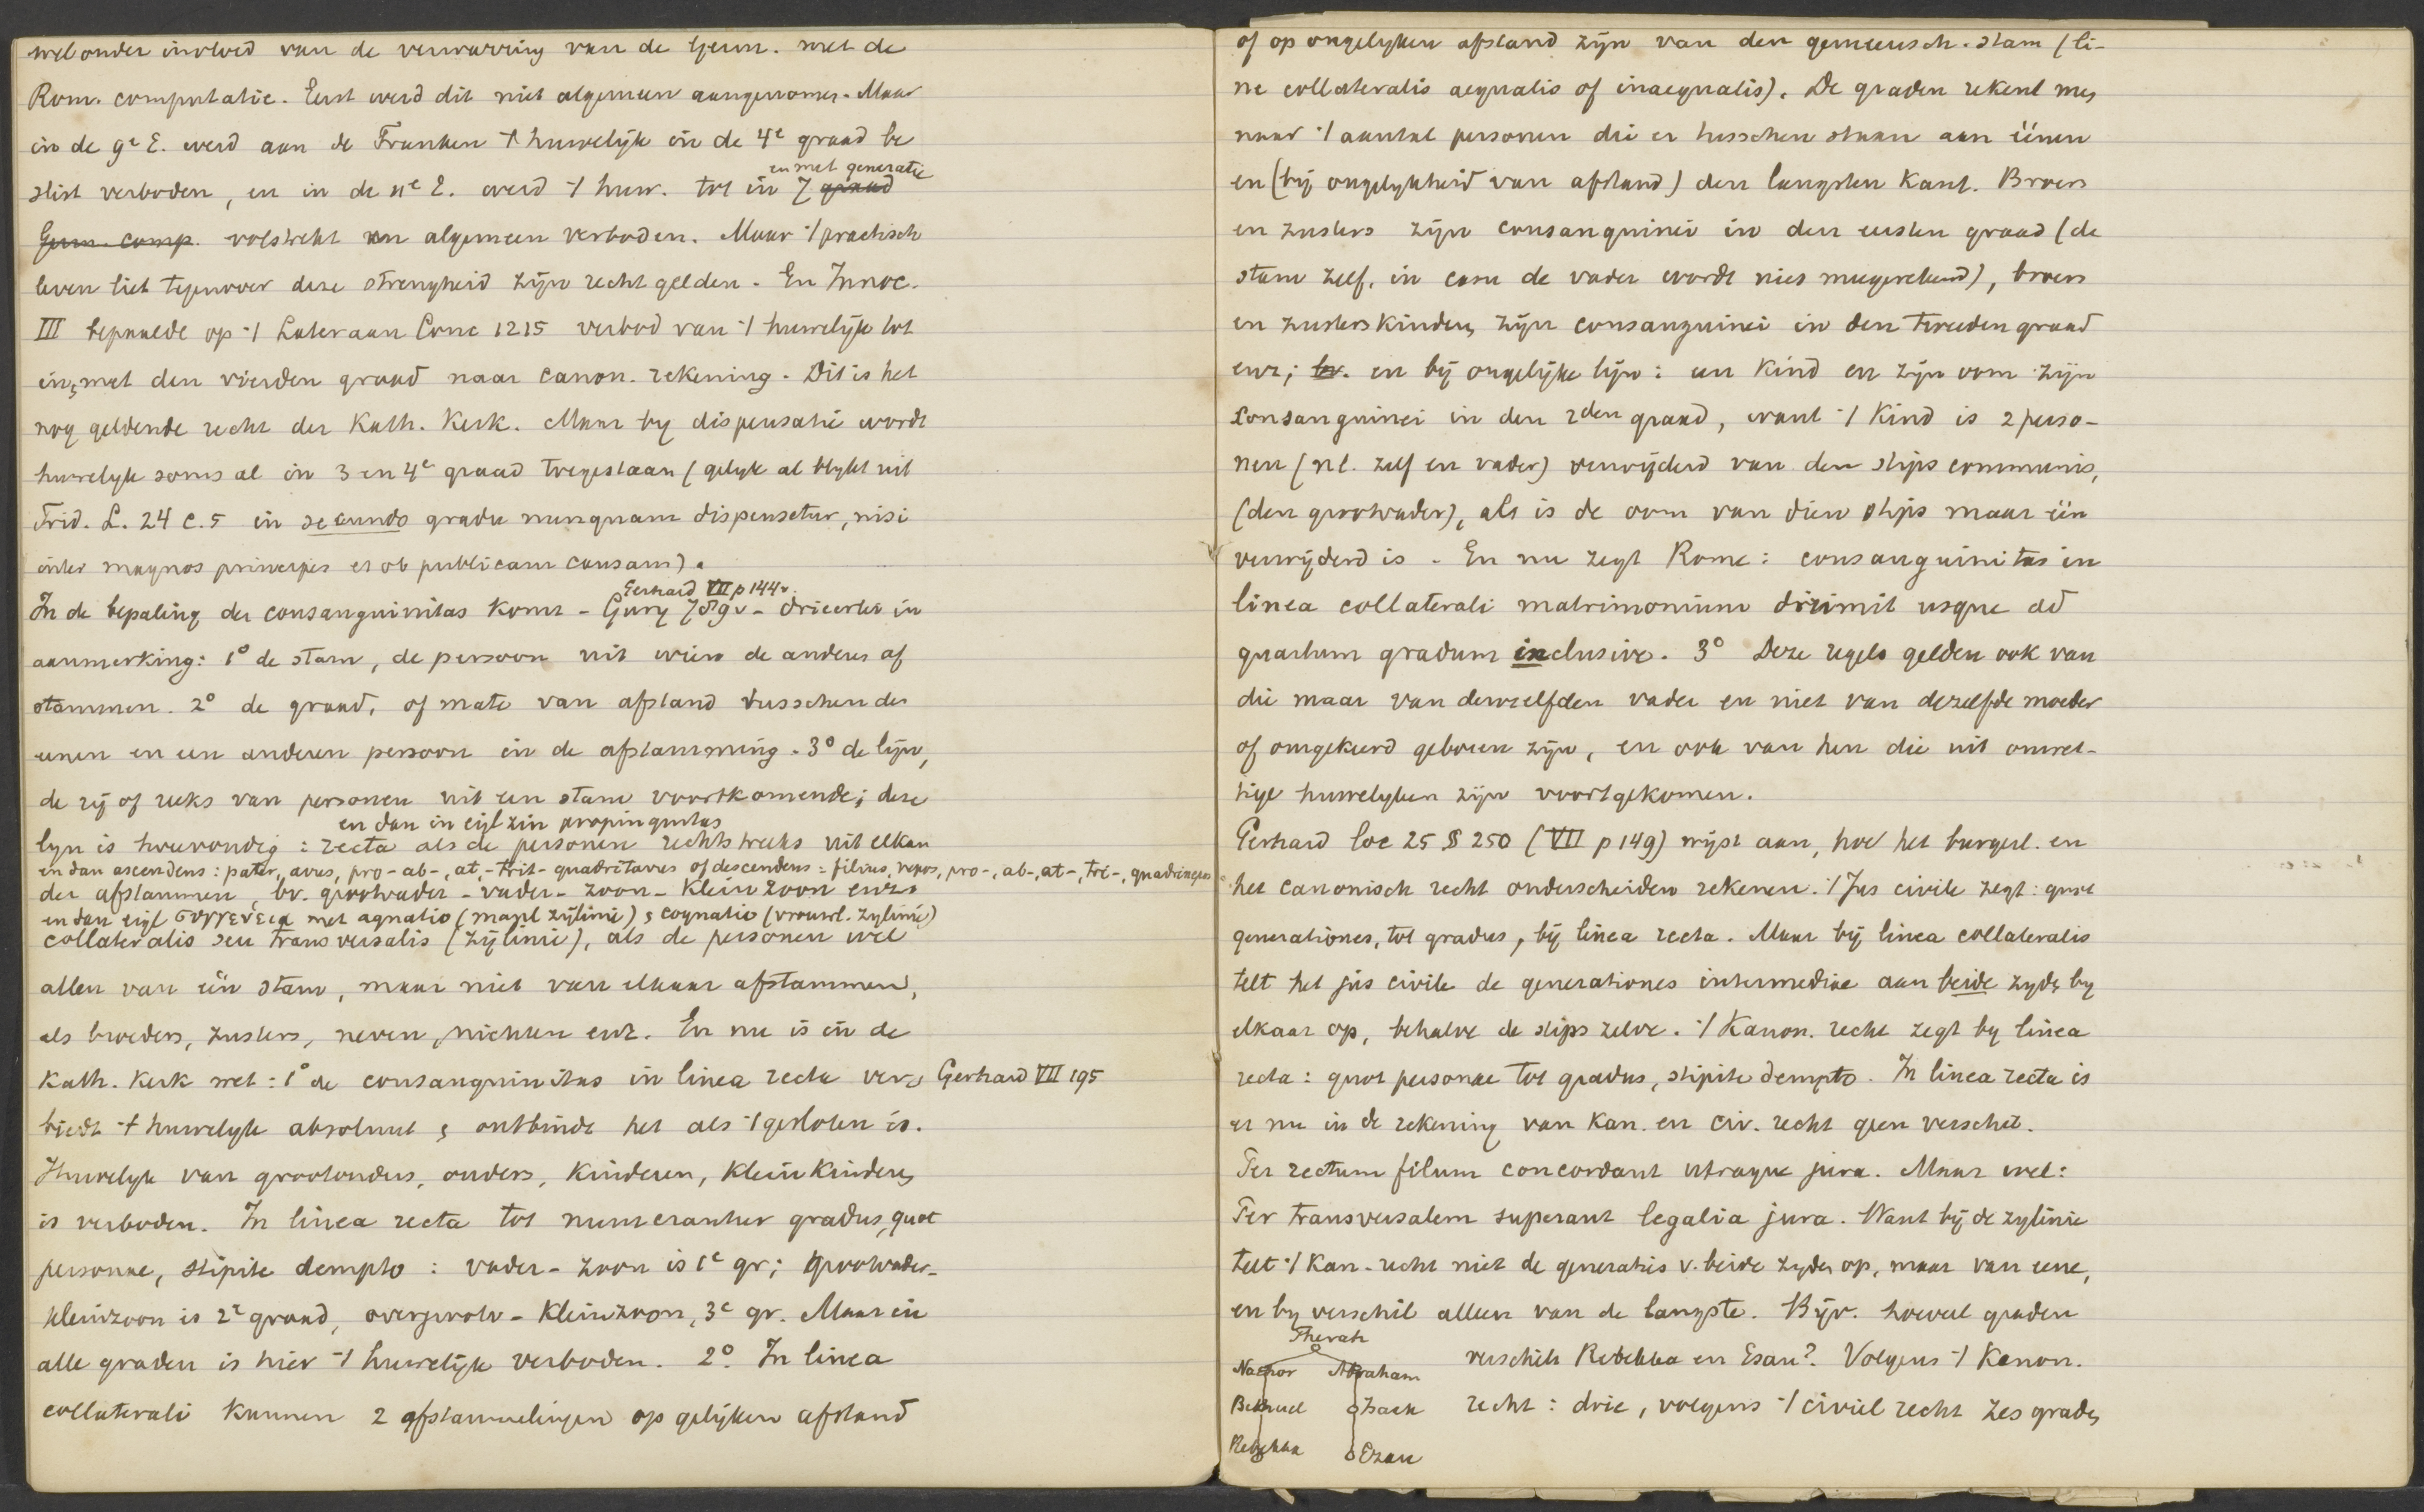 wel onder invloed van de verwarring van de Germ. met de
Rom. computatie. Eerst werd dit niet algemeen aangenomen. Maar
in de 9e E. werd aan de Franken 't huwelijk in de 4e graad be
slist verboden, en in de 11e E. werd 't huw. tot in 7 graad
en met generatie
Germ. comp. volstrekt en algemeen verboden. Maar 't practisch
leven liet tegenover deze strengheid zijn recht gelden. En Innoc.
III bepaalde op 't Lateraan Conc 1215 verbod van 't huwelijk tot
in, met den vierden graad naar canon. rekening. Dit is het
nog geldende recht der Kath. Kerk. Maar by dispensatie wordt
huwelyk soms al in 3 en 4e graad toegestaan (gelyk al blykt uit
Trid. L. 24 c.5 in secundo gradu nunquam dispensetur, nisi
inter magnos principes et ob publicam causam).
Gerhard VII p 144v.
In de bepaling der consanguinitas komt - Gury 789v - drieerlei in
aanmerking: 1° de stam, de persoon uit wien de anderen af
stammen. 2° de graad, of mate van afstand tusschen den
eenen en een anderen persoon in de afstamming. 3° de lijn,
de rij of reeks van personen uit een stam voortkomende; deze
en dan in eigl zin propinquitas
lyn is tweevoudig: recta als de personen rechtstreeks uit elkan
en dan ascendens: pater, avus, pro-ab-, at,-trit-quadritavus of descendens = filius, nepos, pro-, ab-, at-, tri-, quadrinepos
der afstammen, bv. grootvader - vader - zoon - kleinzoon enz.
en dan eigl συγγενεια met agnatio (manl zijlinie) & cognatio (vrouwl. zylinie)
collateralis seu transversalis (zijlinie), als de personen wel
allen van één stam, maar niet van elkaar afstammen,
als broeders, zusters, neven, nichten enz. En nu is in de
Kath. Kerk wet: 1° de consanguinitas in linea recta ver= Gerhard VII 195
biedt 't huwelyk absoluut & ontbindt het als 't gesloten is.
Huwelyk van grootouders, ouders, kinderen, kleinkinderen
is verboden. In linea recta tot numerantur gradus, quot
personae, stipite dempto: vader - zoon is 1e gr; grootvader-
kleinzoon is 2e graad, overgrootv - kleinzoon, 3e gr. Maar in
alle graden is hier 't huwelijk verboden. 2°. In linea
collaterali kunnen 2 afstammelingen op gelijken afstand
of op ongelyken afstand zijn van den gemeensch. stam (li-
ne collateralis aequalis of inaequalis). De graden rekent men
naar 't aantal personen die er tusschen staan aan éénen
en (bij ongelykheid van afstand) den langsten kant. Broers
en zusters zijn consanguinei in den eersten graad (de
stam zelf, in casu de vader wordt niet meegerekend), broers
en zusterskinderen zijn consanguinei in den tweeden graad
enz; bv. en bij ongelijke lijn: een kind en zijn oom zijn
consanguinei in den 2den graad, want 't kind is 2 perso-
nen (nl. zelf en vader) verwijderd van den stips communis,
(den grootvader), als is de oom van dien stips maar één
verwijderd is. En nu zegt Rome: consanguinitas in
linea collaterali matrimonium dirimit usque ad
quartum gradum inclusive. 3° Deze regels gelden ook van
die maar van denzelfden vader en niet van dezelfde moeder
of omgekeerd geboren zijn, en ook van hen die uit onwet-
tige huwelyken zijn voortgekomen.
Gerhard loc 25 § 250 (VII p 149) wijst aan, hoe het burgerl. en
het canonisch recht onderscheiden rekenen. 't Jus civile zegt: quot
generationes, tot gradus, bij linea recta. Maar bij linea collateralis
telt het jus civile de generationes intermediae aan beide zyden by
elkaar op, behalve de stips zelve. 't Kanon. recht zegt by linea
recta: quot personae tot gradus, stipite dempto. In linea recta is
er nu in de rekening van kan. en civ. recht geen verschil.
Per rectum filum concordant utraque jura. Maar wel:
Per transversalem superant legalia jura. Want bij de zylinie
telt 't Kan. recht niet de generaties v. beide zyden op, maar van eene,
en by verschil alleen van de langste. Bijv. hoeveel graden
Therah
Nachor Abraham verschilt Rebekka en Esau? Volgens 't Kanon.
Bethuel Isaak recht: drie, volgens 't civiel recht zes graden
Rebekka Ezau